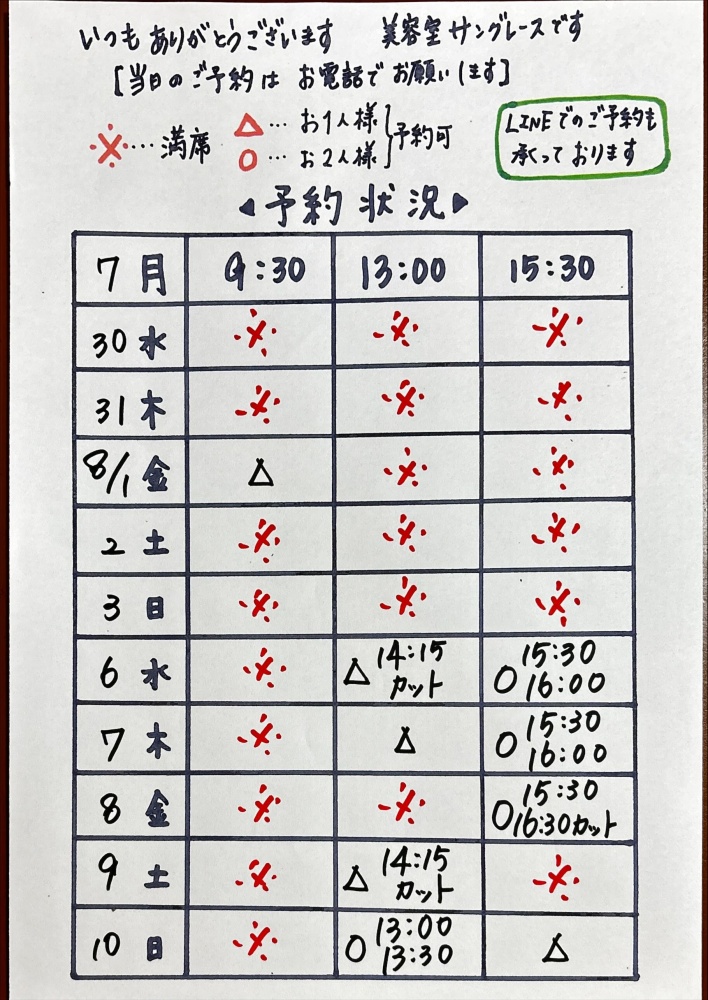 いつもありがとうございます 美容室サングレースです
[当日のご予約は お電話でお願いします]
※…満席 △…お1人様 ○…お2人様 }予約可
LINEでのご予約も
承っております
◀予約状況▶
7月 9:30 13:00 15:30
30 水 ※ ※ ※
31 木 ※ ※ ※
8/1 金 △ ※ ※
2 土 ※ ※ ※
3 日 ※ ※ ※
6 水 ※ △14:15カット ○15:30 16:00
7 木 ※ △ ○15:30 16:00
8 金 ※ ※ ○15:30 16:30カット
9 土 ※ △14:15カット ※
10 日 ※ ○13:00 13:30 △